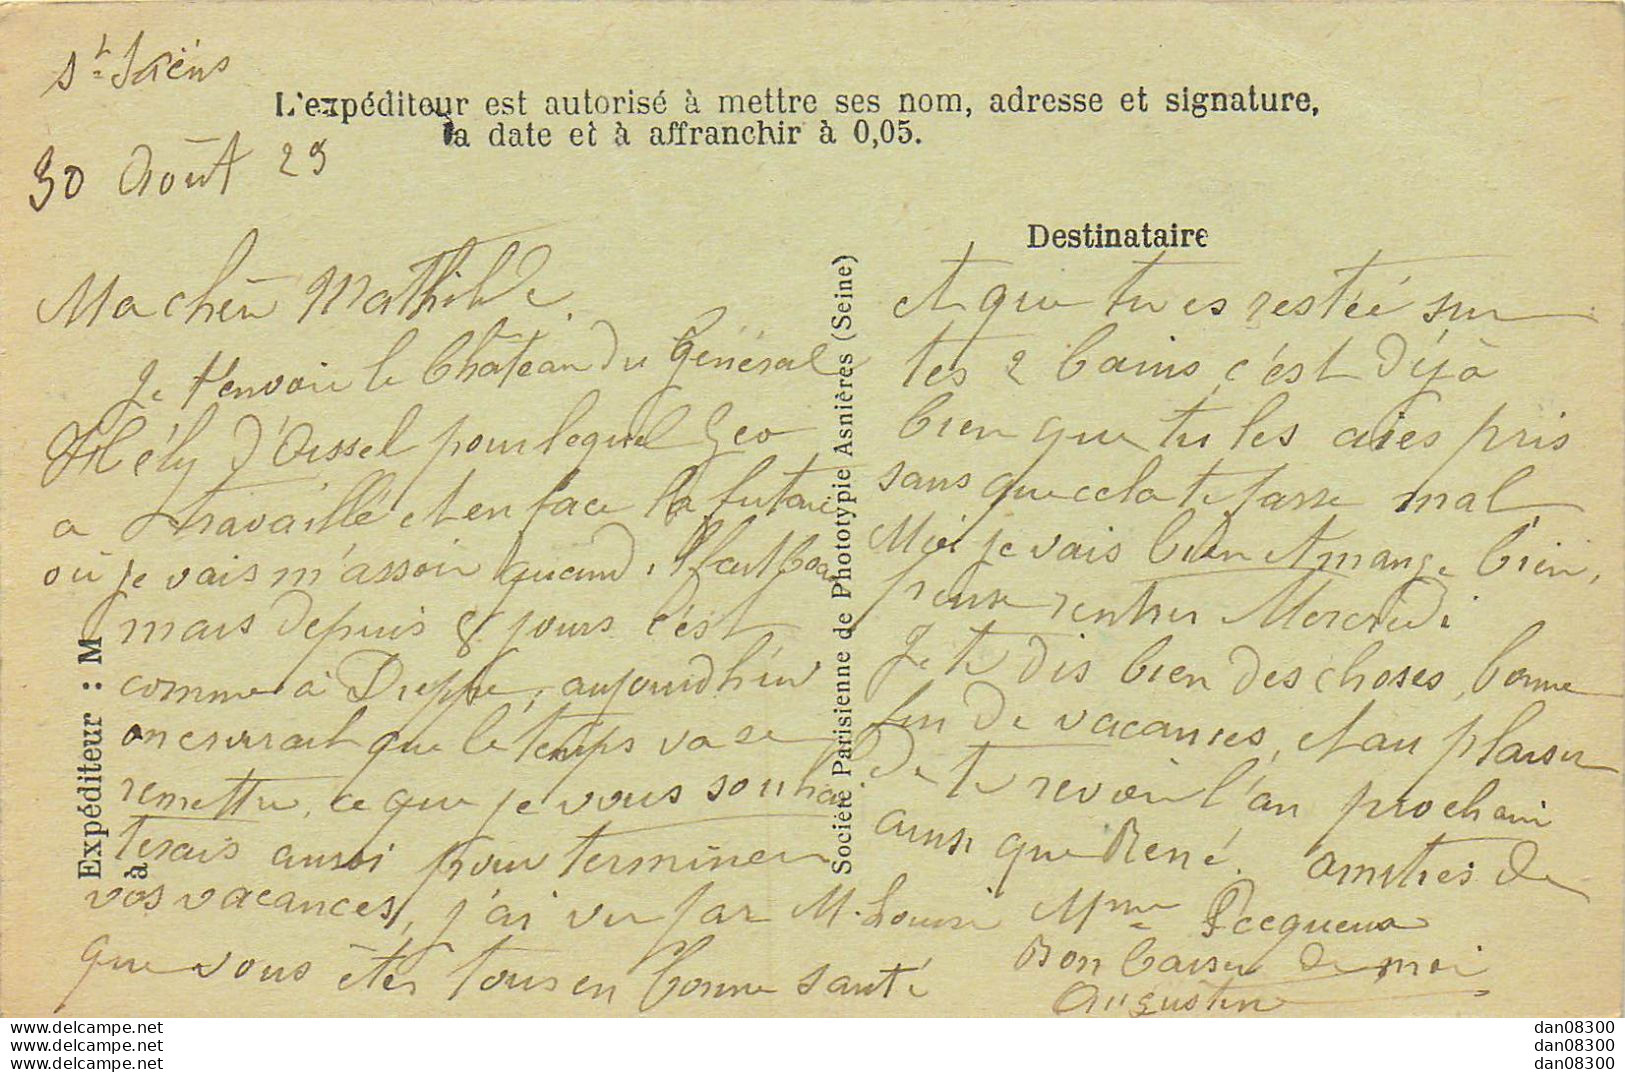 St Saëns
L'expéditeur est autorisé à mettre ses nom, adresse et signature,
la date et à affranchir à 0,05.
30 Août 29
Destinataire
Ma chère Mathilde.
Je t'envoie le Château du Général
Hély d'Oissel pour lequel Geo
a travaillé et en face la futaie
où je vais m'assoir quand il fait beau
mais depuis 8 jours c'est
comme à Dieppe, aujourdhui
on croirait que le temps va se
remettre, ce que je vous souhai
terais aussi pour terminer
vos vacances, j'ai vu par M. Louise
que vous êtes tous en bonne santé
et que tu es restée sur
tes 2 bains, c'est déjà
bien que tu les aies pris
sans que cela te fasse mal,
Moi je vais bien et mange bien,
pense rentrer Mercredi
Je te dis bien des choses, bonne
fin de vacances, et au plaisir
de te revoir l'an prochain
ainsi que René. amitiés de
Mme
Bon baiser de moi
Augustine
Expéditeur : M
à
Société Parisienne de Phototypie Asnières (Seine)
www.delcampe.net
www.delcampe.net
www.delcampe.net
dan08300
dan08300
dan08300